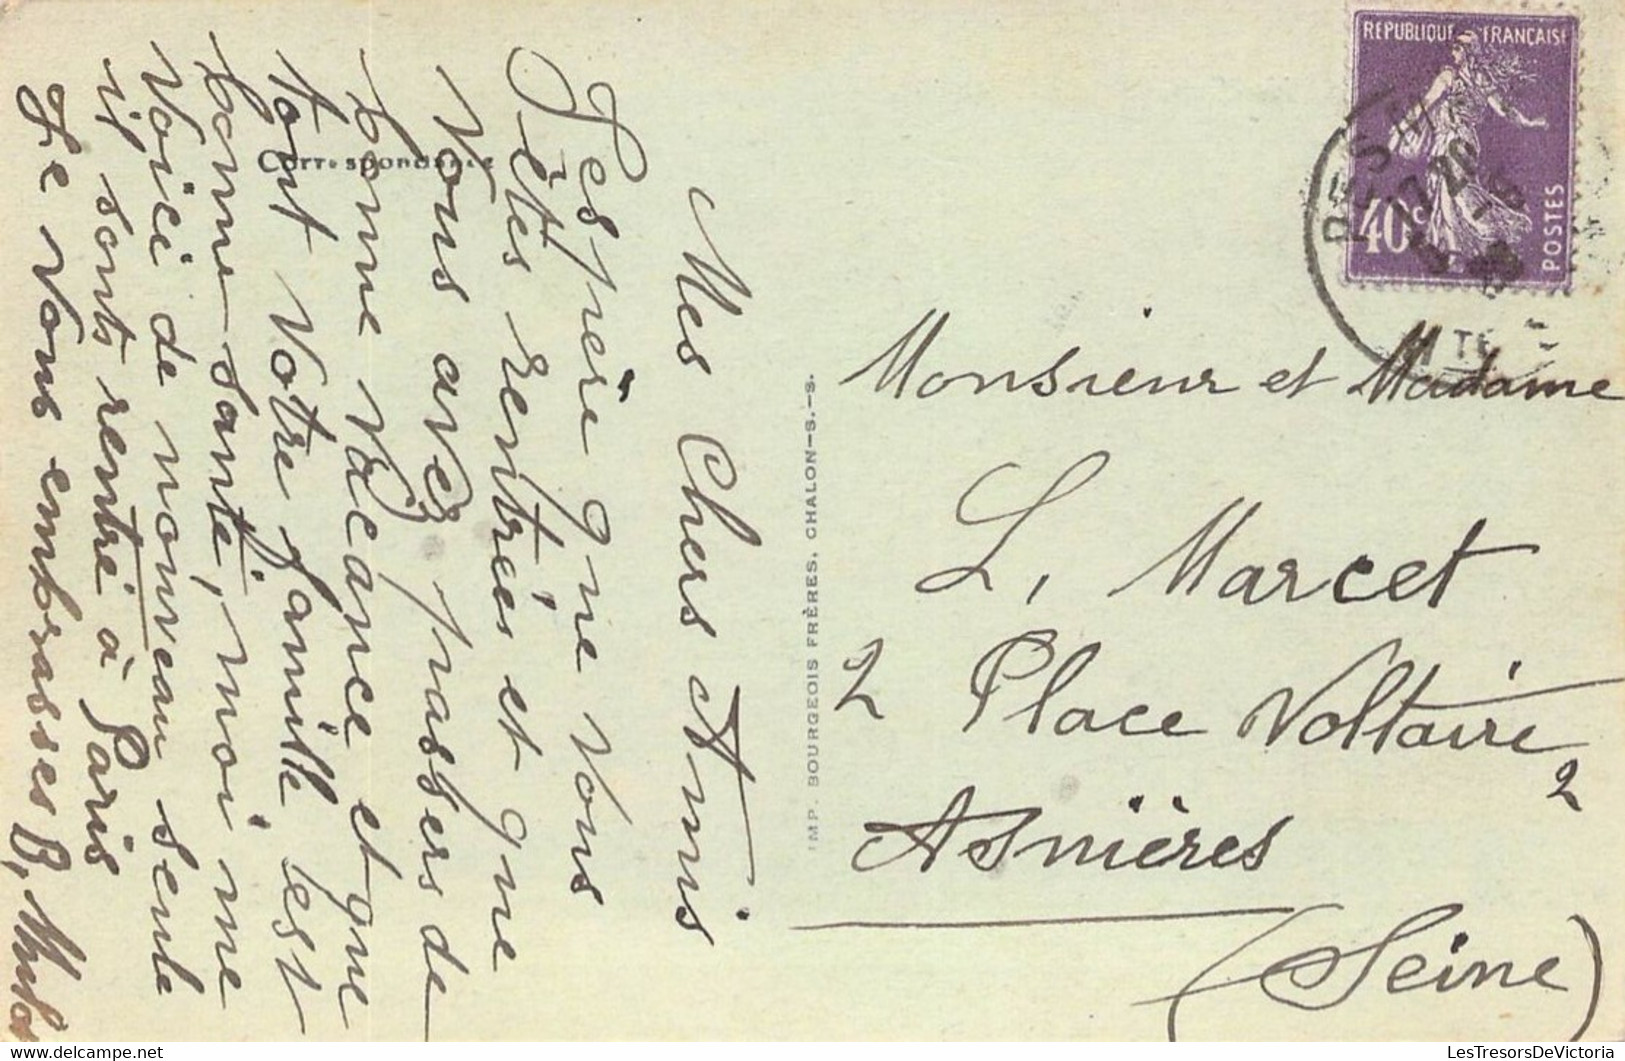 Correspondance
Mes Chers Amis
J'espère que vous
êtes rentrées et que
vous avez passers de
bonne vacance et que
tout votre famille est
bonne santé, moi me
voici de nouveau seule
il sonts rentré à Paris
Je vous embrasses B,
IMP. BOURGEOIS FRÈRES, CHALON-S.-S.
REPUBLIQUE FRANÇAISE
40c
POSTES
Monsieur et Madame
L, Marcet
2 Place Voltaire 2
Asnières
(Seine)
LesTresorsDeVictoria